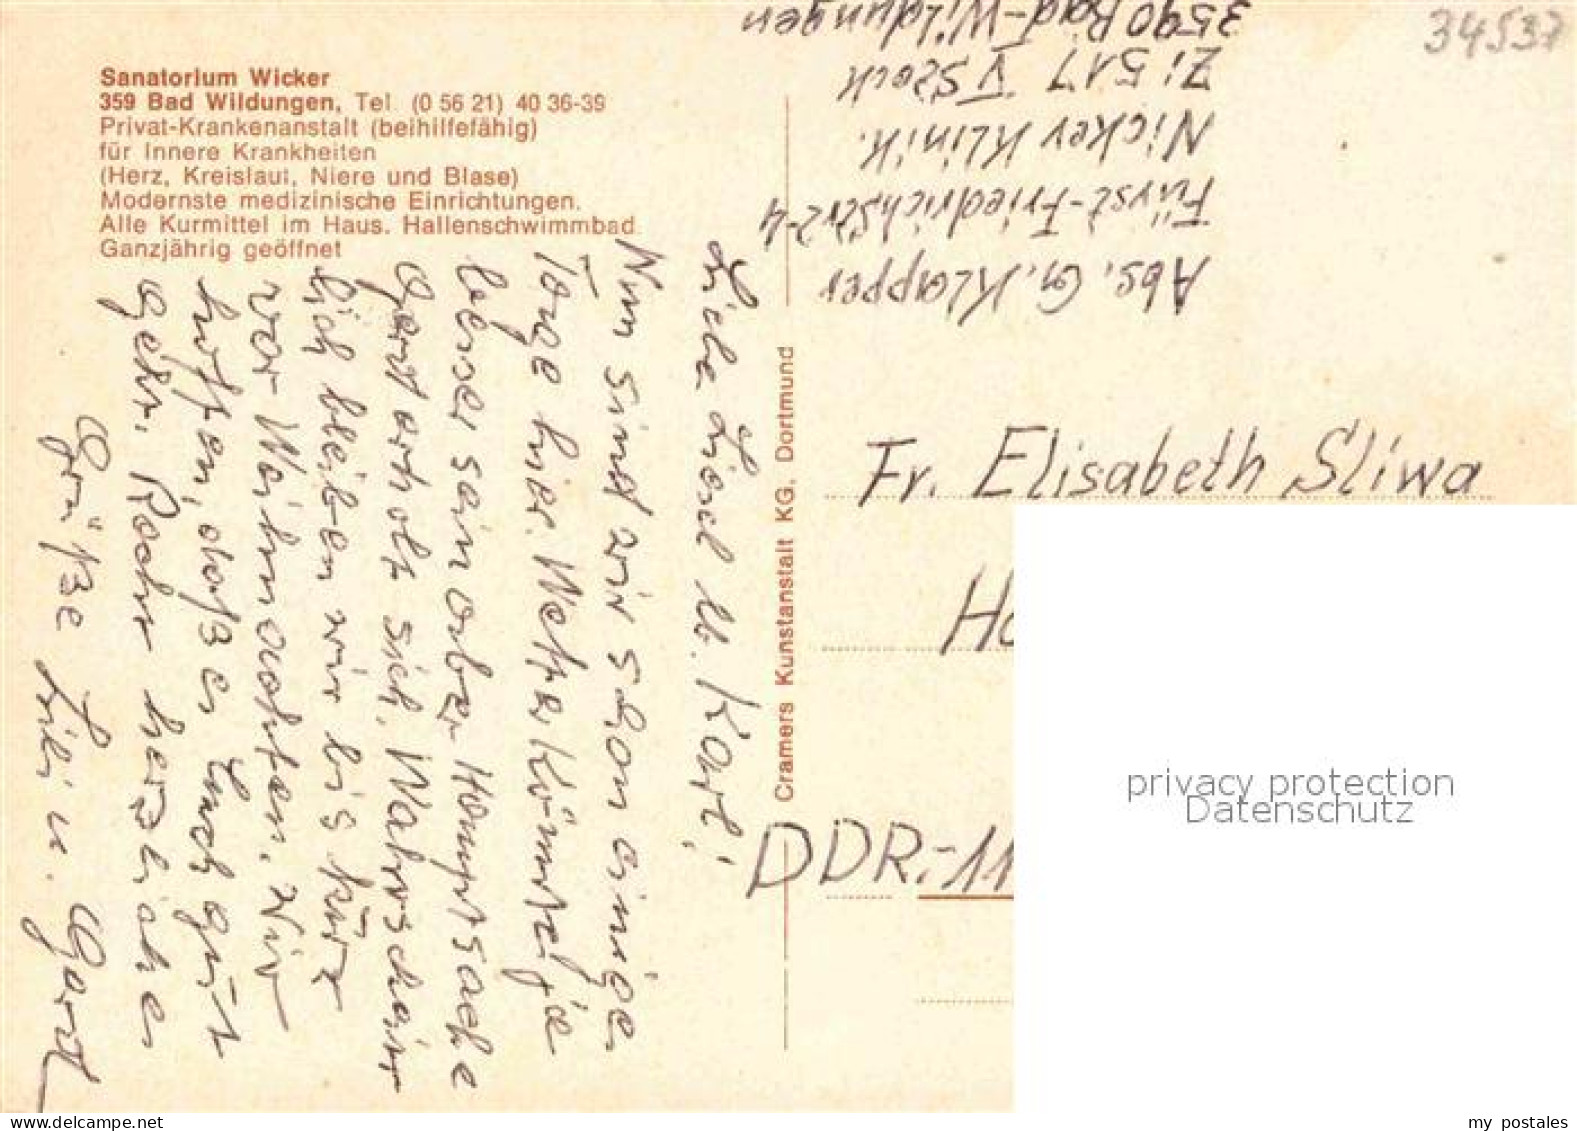 Sanatorium Wicker
359 Bad Wildungen, Tel. (0 56 21) 40 36-39
Privat-Krankenanstalt (beihilfefähig)
für Innere Krankheiten
(Herz, Kreislauf, Niere und Blase)
Modernste medizinische Einrichtungen.
Alle Kurmittel im Haus. Hallenschwimmbad.
Ganzjährig geöffnet
Liebe Liesel lb. Karl!
Nun sind wir schon einige
Tage hier. Wetter könnte
besser sein aber Hauptsache
Gerd erholt sich. Wahrschein
lich bleiben wir bis kurz
vor Weihnachten. Wir
hoffen, daß es Euch gut
geht. Recht herzliche
Grüße u. Gerd
Cramers Kunstanstalt KG. Dortmund
Abs. G. Klapper
Fürst-Friedrichstr 2-4
Wicker Klinik.
Zi 517 V Stock
3590 Bad-Wildungen
34537
Fr. Elisabeth Sliwa
Ho
DDR.-11
privacy protection
Datenschutz
my postales